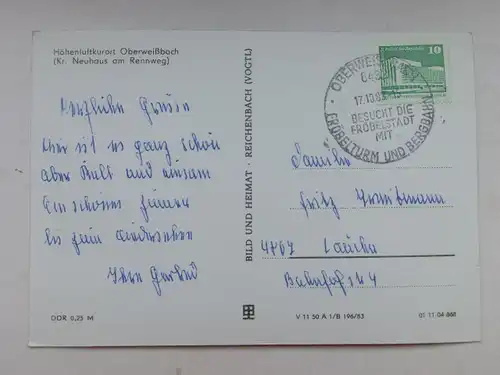 Höhenluftkurort Oberweißbach
(Kr. Neuhaus am Rennweg)
Herzliche Grüße
Hier ist es ganz schön
aber kalt und einsam
Ein schönes
bis zum Wiedersehen
Ihre
DDR 0,25 M
BILD UND HEIMAT · REICHENBACH (VOGTL)
V 11 50 A 1/B 196/83
01 11 04 868
10
17.10.83
BESUCHT DIE
FRÖBELSTADT
MIT
FRÖBELTURM UND BERGBAHN
Familie
Fritz
Laucha
Bahnhofstr 4